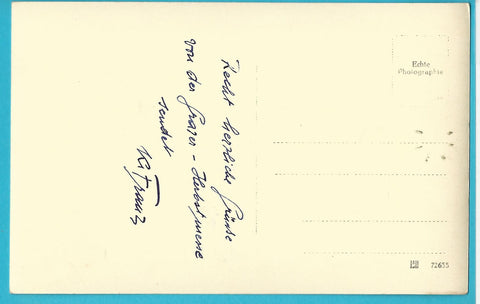 Recht herzliche Grüße
von der Grazer-Herbstmesse
sendet
Franz
Echte
Photographie
72655